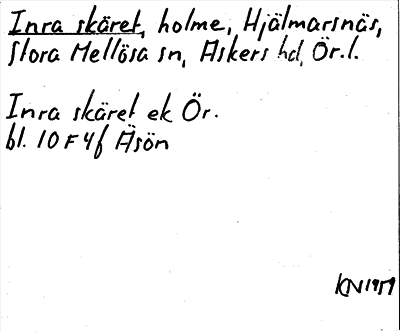 Inra skäret, holme, Hjälmarsnäs,
Stora Mellösa sn, Askers hd, Ör.l.
Inra skäret ek Ör.
bl. 10 F 4f Äsön